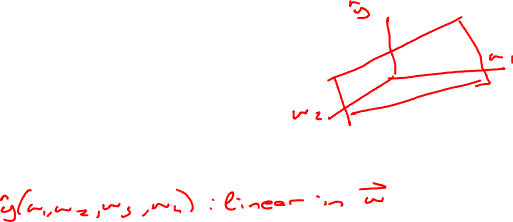 ŷ
w₁
w₂
ŷ(w₁,w₂,w₃,w₄) : linear in w⃗